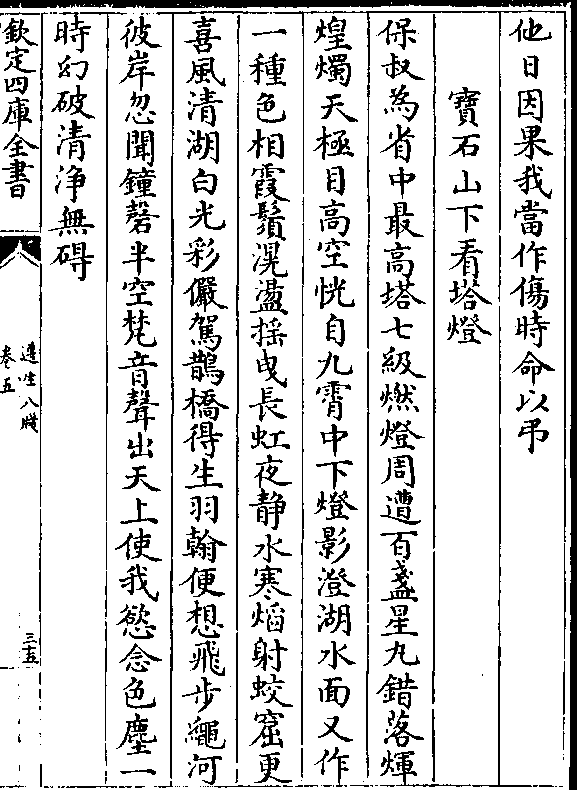 他日因果我當作傷時命以弔
寶石山下看塔燈
保叔為省中最高塔七級燃燈周遭百盞星丸錯落輝
煌燭天極目高空恍自九霄中下燈影澄湖水面又作
一種色相霞鬚滉盪揺曵長虹夜静水寒焰射蛟窟更
喜風清湖白光彩儼駕鵲橋得生羽翰便想飛步繩河
彼岸忽聞鐘磬半空梵音聲出天上使我慾念色塵一
時幻破清浄無碍
欽定四庫全書
遵生八牋
卷五
三五